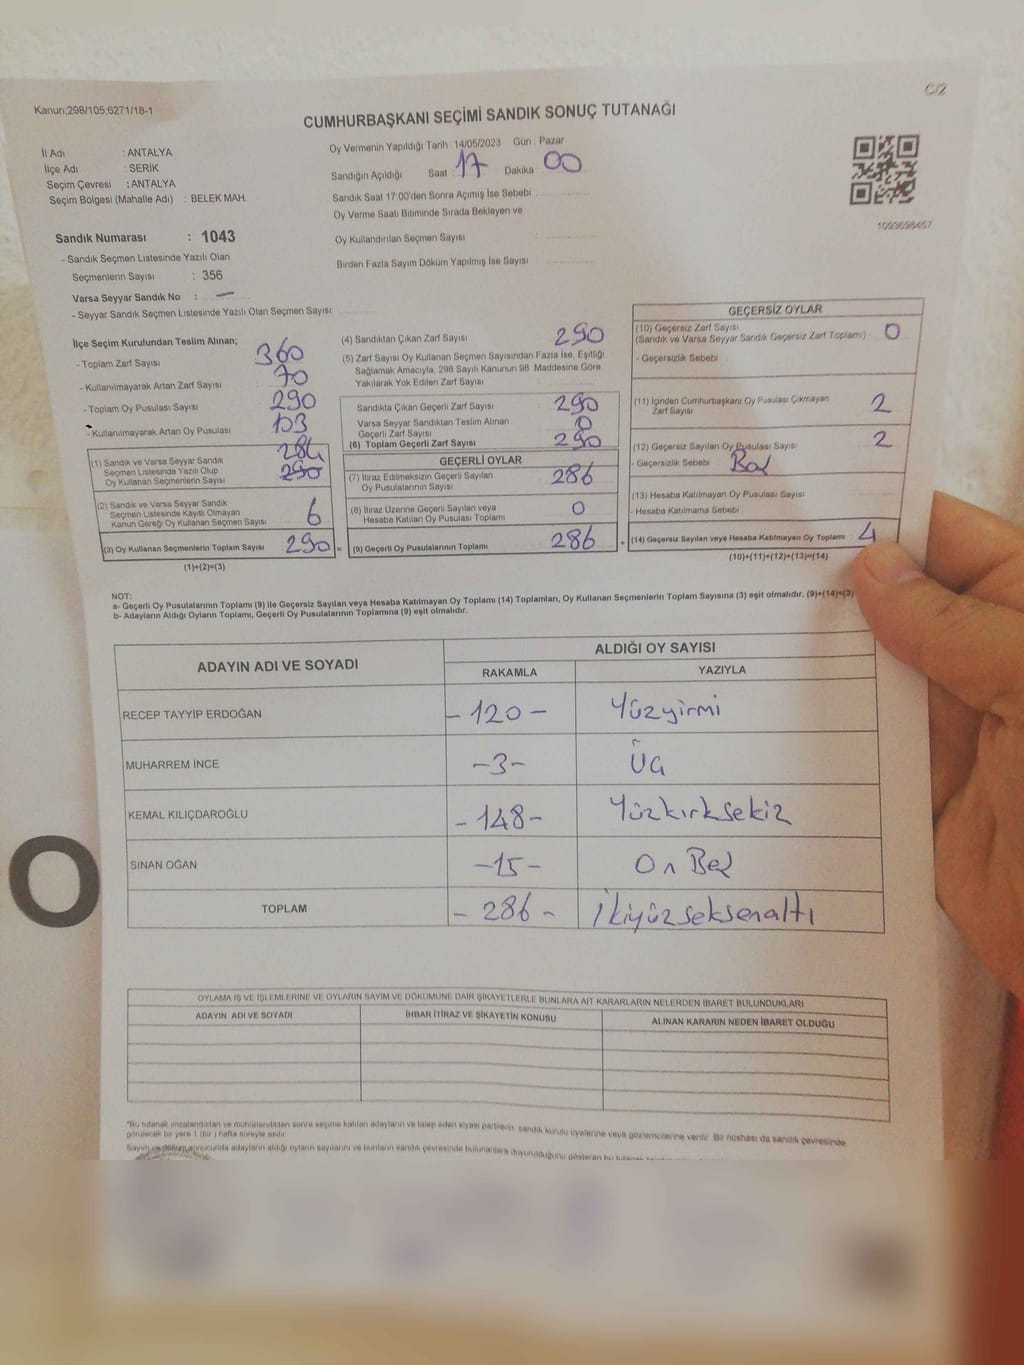 C/2
Kanun;298/105;6271/18-1
CUMHURBAŞKANI SEÇİMİ SANDIK SONUÇ TUTANAĞI
İl Adı : ANTALYA
İlçe Adı : SERİK
Seçim Çevresi : ANTALYA
Seçim Bölgesi (Mahalle Adı) : BELEK MAH.
Sandık Numarası : 1043
- Sandık Seçmen Listesinde Yazılı Olan
Seçmenlerin Sayısı : 356
Varsa Seyyar Sandık No : —
- Seyyar Sandık Seçmen Listesinde Yazılı Olan Seçmen Sayısı:
Oy Vermenin Yapıldığı Tarih 14/05/2023 Gün : Pazar
Sandığın Açıldığı Saat 17 Dakika 00
Sandık Saat 17:00'den Sonra Açımış İse Sebebi
Oy Verme Saati Bitiminde Sırada Bekleyen ve
Oy Kullandırılan Seçmen Sayısı :
Birden Fazla Sayım Döküm Yapılmış İse Sayısı
1093698467
İlçe Seçim Kurulundan Teslim Alınan;
- Toplam Zarf Sayısı 360
- Kullanılmayarak Artan Zarf Sayısı 70
- Toplam Oy Pusulası Sayısı 290
- Kullanılmayarak Artan Oy Pusulası 103
(1) Sandık ve Varsa Seyyar Sandık 284
Seçmen Listesinde Yazılı Olup 290
Oy Kullanan Seçmenlerin Sayısı
(2) Sandık ve Varsa Seyyar Sandık
Seçmen Listesinde Kayıtlı Olmayan 6
Kanun Gereği Oy Kullanan Seçmen Sayısı
(3) Oy Kullanan Seçmenlerin Toplam Sayısı 290 =
(1)+(2)=(3)
(4) Sandıktan Çıkan Zarf Sayısı 290
(5) Zarf Sayısı Oy Kullanan Seçmen Sayısından Fazla İse, Eşitliği
Sağlamak Amacıyla, 298 Sayılı Kanunun 98. Maddesine Göre
Yakılarak Yok Edilen Zarf Sayısı
Sandıkta Çıkan Geçerli Zarf Sayısı 290
Varsa Seyyar Sandıktan Teslim Alınan 0
Geçerli Zarf Sayısı
(6) Toplam Geçerli Zarf Sayısı 290
GEÇERLİ OYLAR
(7) İtiraz Edilmeksizin Geçerli Sayılan 286
Oy Pusulalarının Sayısı
(8) İtiraz Üzerine Geçerli Sayılan veya 0
Hesaba Katılan Oy Pusulası Toplamı
(9) Geçerli Oy Pusulalarının Toplamı 286 +
GEÇERSİZ OYLAR
(10) Geçersiz Zarf Sayısı 0
(Sandık ve Varsa Seyyar Sandık Geçersiz Zarf Toplamı)
- Geçersizlik Sebebi
(11) İçinden Cumhurbaşkanı Oy Pusulası Çıkmayan 2
Zarf Sayısı
(12) Geçersiz Sayılan Oy Pusulası Sayısı 2
- Geçersizlik Sebebi Boş
(13) Hesaba Katılmayan Oy Pusulası Sayısı
- Hesaba Katılmama Sebebi
(14) Geçersiz Sayılan veya Hesaba Katılmayan Oy Toplamı 4
(10)+(11)+(12)+(13)=(14)
NOT:
a- Geçerli Oy Pusulalarının Toplamı (9) ile Geçersiz Sayılan veya Hesaba Katılmayan Oy Toplamı (14) Toplamları, Oy Kullanan Seçmenlerin Toplam Sayısına (3) eşit olmalıdır. (9)+(14)=(3)
b- Adayların Aldığı Oyların Toplamı, Geçerli Oy Pusulalarının Toplamına (9) eşit olmalıdır.
ADAYIN ADI VE SOYADI
ALDIĞI OY SAYISI
RAKAMLA YAZIYLA
RECEP TAYYİP ERDOĞAN -120- Yüzyirmi
MUHARREM İNCE -3- Üç
KEMAL KILIÇDAROĞLU -148- Yüzkırksekiz
SİNAN OĞAN -15- On Beş
TOPLAM -286- İkiyüzseksenaltı
OYLAMA İŞ VE İŞLEMLERİNE VE OYLARIN SAYIM VE DÖKÜMÜNE DAİR ŞİKAYETLERLE BUNLARA AİT KARARLARIN NELERDEN İBARET BULUNDUKLARI
ADAYIN ADI VE SOYADI İHBAR İTİRAZ VE ŞİKAYETİN KONUSU ALINAN KARARIN NEDEN İBARET OLDUĞU
*Bu tutanak imzalandıktan ve mühürlendikten sonra seçime katılan adayların ve talep eden siyasi partilerin sandık kurulu üyelerine veya gözlemcilerine verilir. Bir nüshası da sandık çevresinde
görülecek bir yere 1 (bir) hafta süreyle asılır.
Sayım ve döküm sonucunda adayların aldığı oyların sayılarını ve bunların sandık çevresinde bulunanlara duyurulduğunu gösteren bu
O